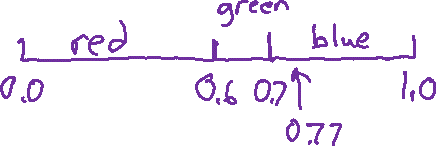 green
red blue
0.0 0.6 0.7 1.0
0.77